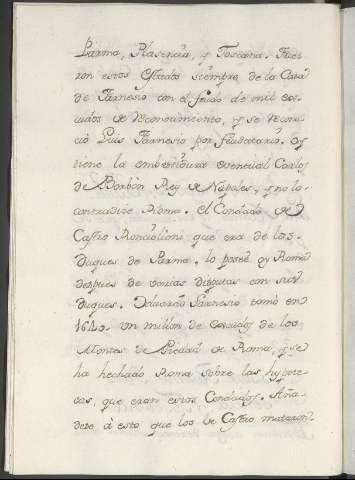 Parma, Plasencia, y Toscana. Fue-
ron estos estados siempre de la Casa
de Farnesio con el feudo de mil es-
cudos de reconocimiento, y se recono-
ció Luis Farnesio por feudatario. Oy
tiene la embestidura evencial Carlos
de Borbón Rey de Napoles, y no lo
contradice Roma. El Condado de
Castro Ronciglioni que era de los
Duques de Parma. lo poseé oy Roma
despues de varias disputas con sus
Duques. Eduardo Farnesio tomó en
1640. un millon de escudos de los
Montes de Piedad de Roma, y se
ha hechado Roma sobre las hypote-
cas, que eran estos Condados. Aña-
dese á esto que los de Castro mataron